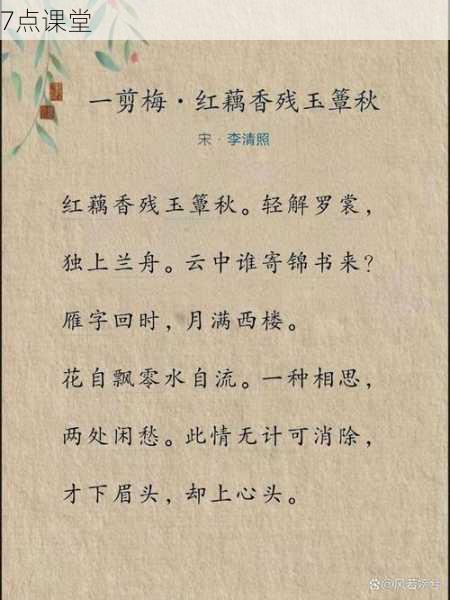 7点课堂
一剪梅·红藕香残玉簟秋
宋·李清照
红藕香残玉簟秋。轻解罗裳，
独上兰舟。云中谁寄锦书来？
雁字回时，月满西楼。
花自飘零水自流。一种相思，
两处闲愁。此情无计可消除，
才下眉头，却上心头。